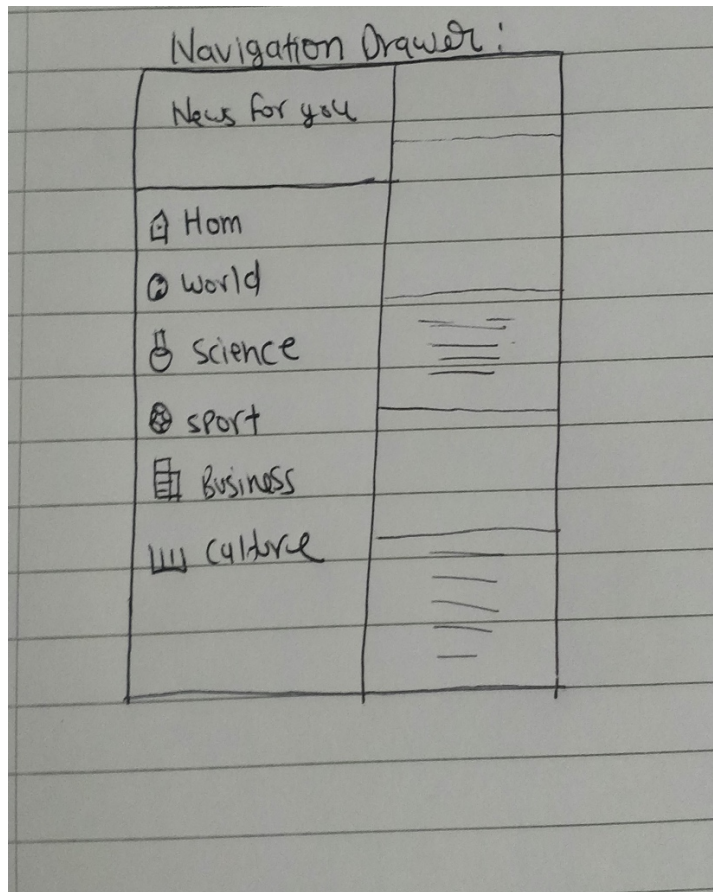 Navigation Drawer:
News for you
Hom
world
science
sport
Business
culture